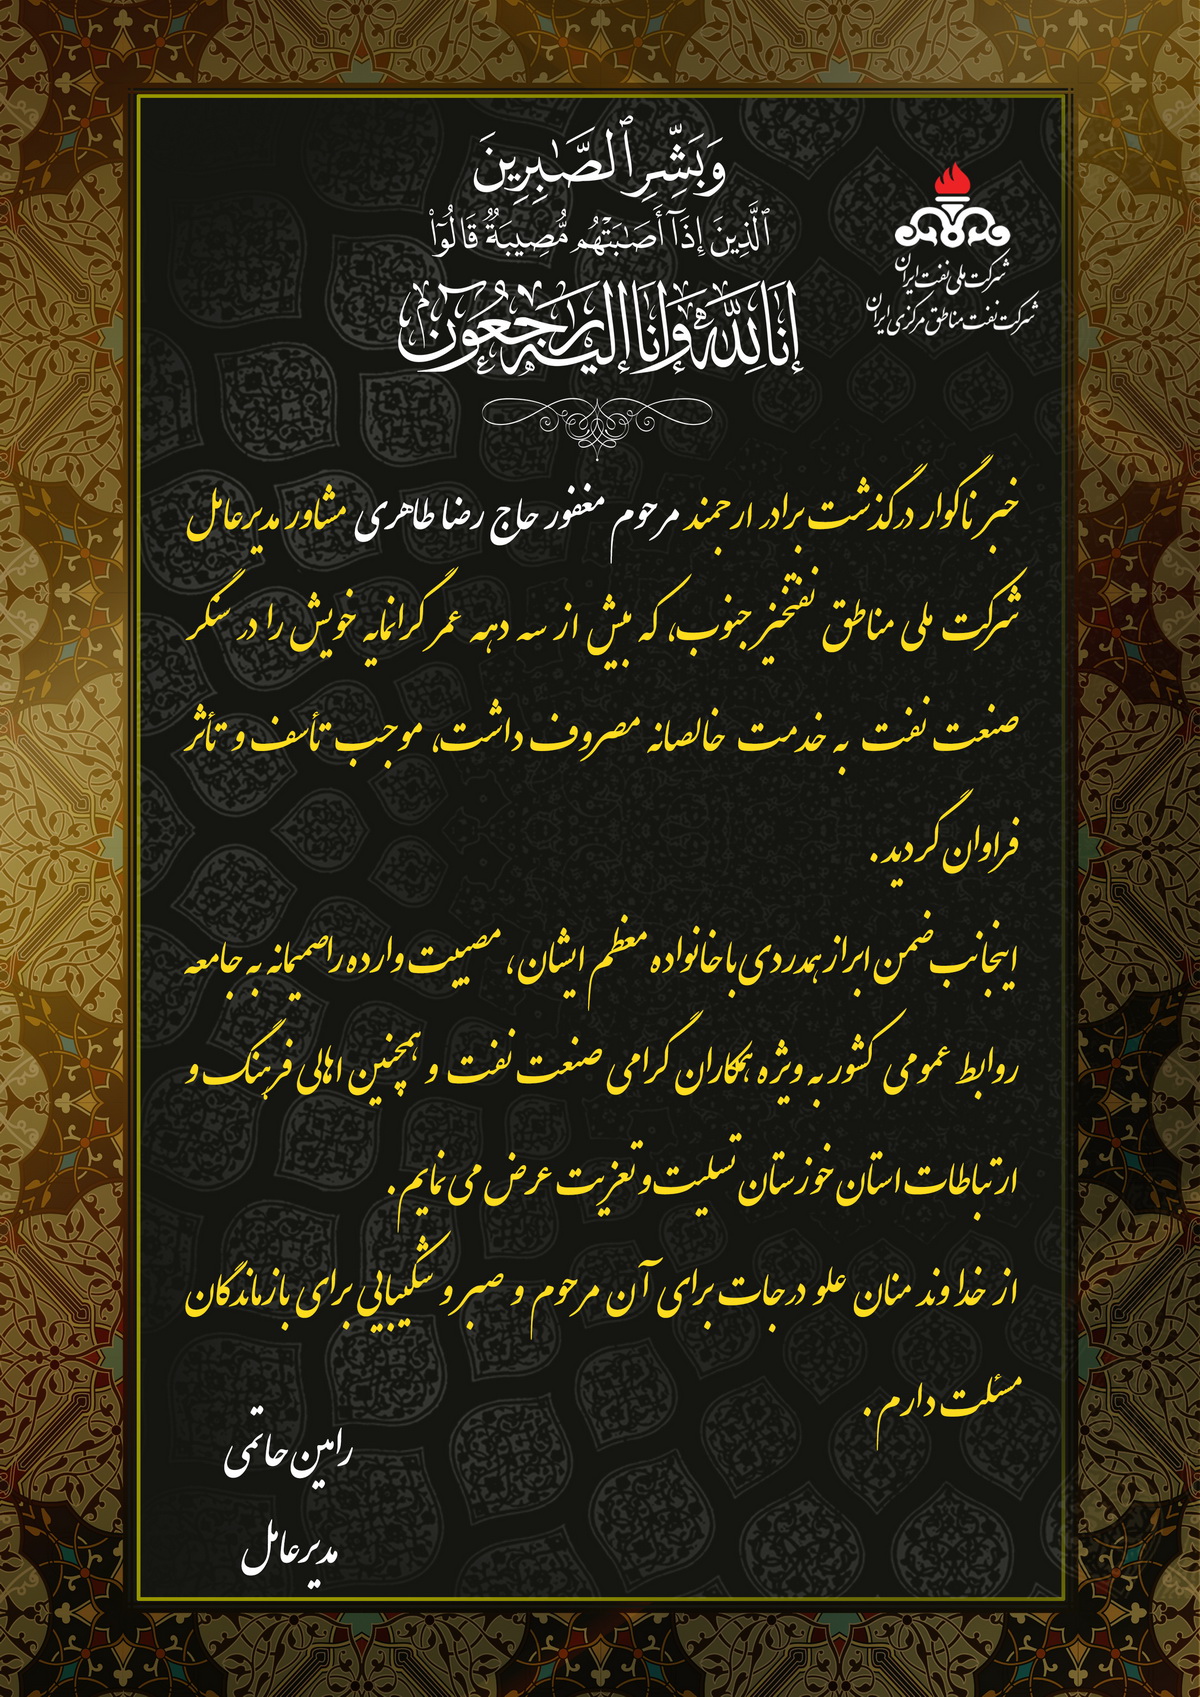 وَبَشِّرِ ٱلصَّـٰبِرِينَ
ٱلَّذِينَ إِذَآ أَصَـٰبَتْهُم مُّصِيبَةٌ قَالُوٓا۟
إنا لله وانا الیه راجعون
شرکت ملی نفت ایران
شرکت نفت مناطق مرکزی ایران
خبر ناگوار درگذشت برادر ارجمند مرحوم مغفور حاج رضا طاهری مشاور مدیرعامل
شرکت ملی مناطق نفتخیز جنوب، که بیش از سه دهه عمر گرانمایه خویش را در سنگر
صنعت نفت به خدمت خالصانه مصروف داشت، موجب تأسف و تأثر
فراوان گردید.
اینجانب ضمن ابراز همدردی با خانواده معظم ایشان، مصیبت وارده را صمیمانه به جامعه
روابط عمومی کشور به ویژه همکاران گرامی صنعت نفت و همچنین اهالی فرهنگ و
ارتباطات استان خوزستان تسلیت و تعزیت عرض می نمایم.
از خداوند منان علو درجات برای آن مرحوم و صبر و شکیبایی برای بازماندگان
مسئلت دارم.
رامین حاتمی
مدیرعامل